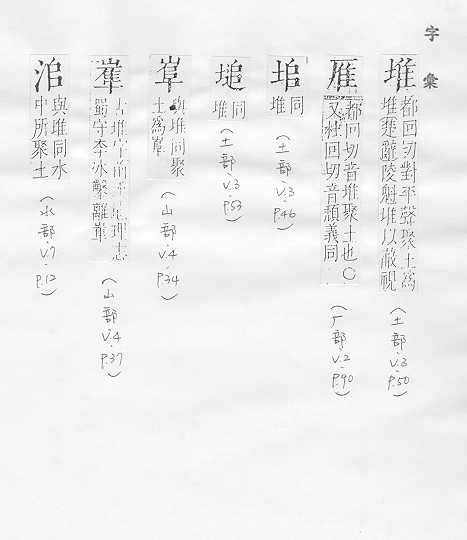 字彙
堆
都回切對平聲聚土為
堆楚辭陵魁堆以蔽視
(土部.v.3.p.50)
都回切音堆聚土也○
回切音頹義同
(厂部.v.2.p.90)
垖
同
堆
(土部.v.3.p.46)
塠
同
堆
(土部.v.3.p.53)
與堆同聚
土為
(山部.v.4.p.34)
古堆字前漢地理志
蜀守李冰鑿離
(山部.v.4.p.37)
與堆同水
中所聚土
(水部.v.7.p.12)